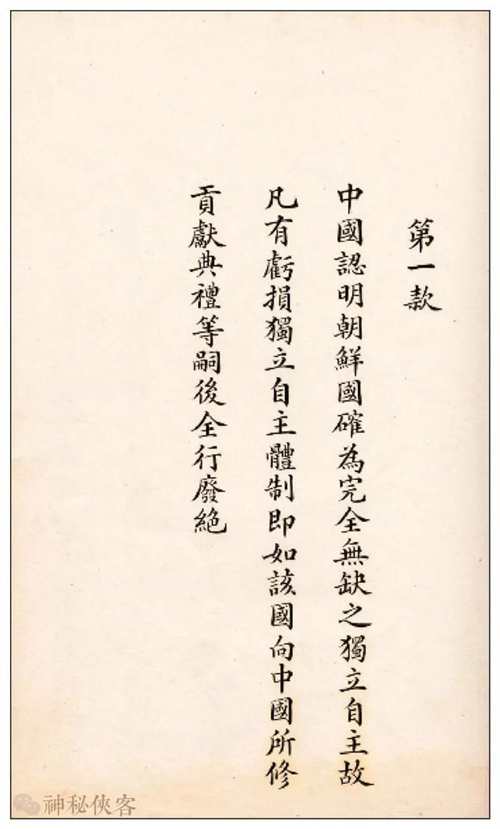 第一款
中國認明朝鮮國確為完全無缺之獨立自主故
凡有虧損獨立自主體制即如該國向中國所修
貢獻典禮等嗣後全行廢絶
神秘俠客